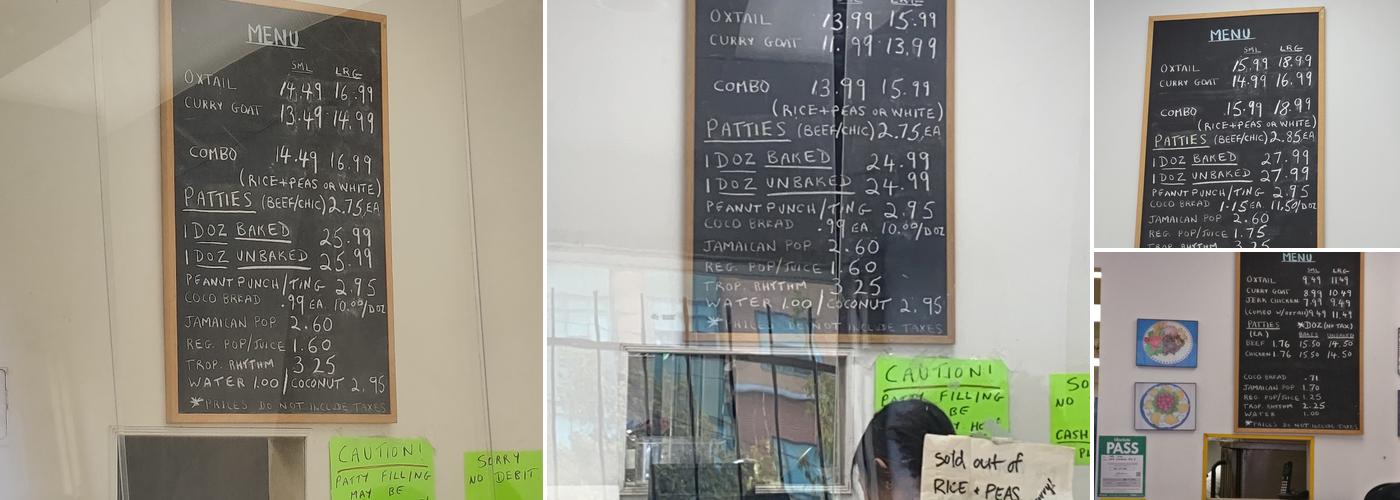 MENU
SML LRG
OXTAIL 14.49 16.99
CURRY GOAT 13.49 14.99
COMBO 14.49 16.99
(RICE+PEAS OR WHITE)
PATTIES (BEEF/CHIC) 2.75,EA
1 DOZ BAKED 25.99
1 DOZ UNBAKED 25.99
PEANUT PUNCH/TING 2.95
COCO BREAD .99 EA. 10.00/DOZ
JAMAICAN POP 2.60
REG. POP/JUICE 1.60
TROP. RHYTHM 3.25
WATER 1.00/COCONUT 2.95
*PRICES DO NOT INCLUDE TAXES
CAUTION!
PATTY FILLING
MAY BE
SORRY
NO DEBIT
OXTAIL 13.99 15.99
CURRY GOAT 11.99 13.99
COMBO 13.99 15.99
(RICE+PEAS OR WHITE)
PATTIES (BEEF/CHIC) 2.75,EA
1 DOZ BAKED 24.99
1 DOZ UNBAKED 24.99
PEANUT PUNCH/TING 2.95
COCO BREAD .99 EA. 10.00/DOZ
JAMAICAN POP 2.60
REG. POP/JUICE 1.60
TROP. RHYTHM 3.25
WATER 1.00/COCONUT 2.95
*PRICES DO NOT INCLUDE TAXES
CAUTION!
PATTY FILLING
BE
SO
NO
CASH
Sold out of
RICE + PEAS
MENU
SML LRG
OXTAIL 15.99 18.99
CURRY GOAT 14.99 16.99
COMBO 15.99 18.99
(RICE+PEAS OR WHITE)
PATTIES (BEEF/CHIC) 2.85,EA
1 DOZ BAKED 27.99
1 DOZ UNBAKED 27.99
PEANUT PUNCH/TING 2.95
COCO BREAD 1.15 EA. 11.50/DOZ
JAMAICAN POP 2.60
REG. POP/JUICE 1.75
MENU
SML LRG
OXTAIL 9.49 11.49
CURRY GOAT 8.99 10.49
JERK CHICKEN 7.99 9.49
(COMBO W/OXTAIL) 9.49 11.49
PATTIES *DOZ (NO TAX)
(EA.) BAKED UNBAKED
BEEF 1.76 15.50 14.50
CHICKEN 1.76 15.50 14.50
COCO BREAD .71
JAMAICAN POP 1.70
REG. POP/JUICE 1.25
TROP. RHYTHM 2.25
WATER 1.00
*PRICES DO NOT INCLUDE TAXES
PASS